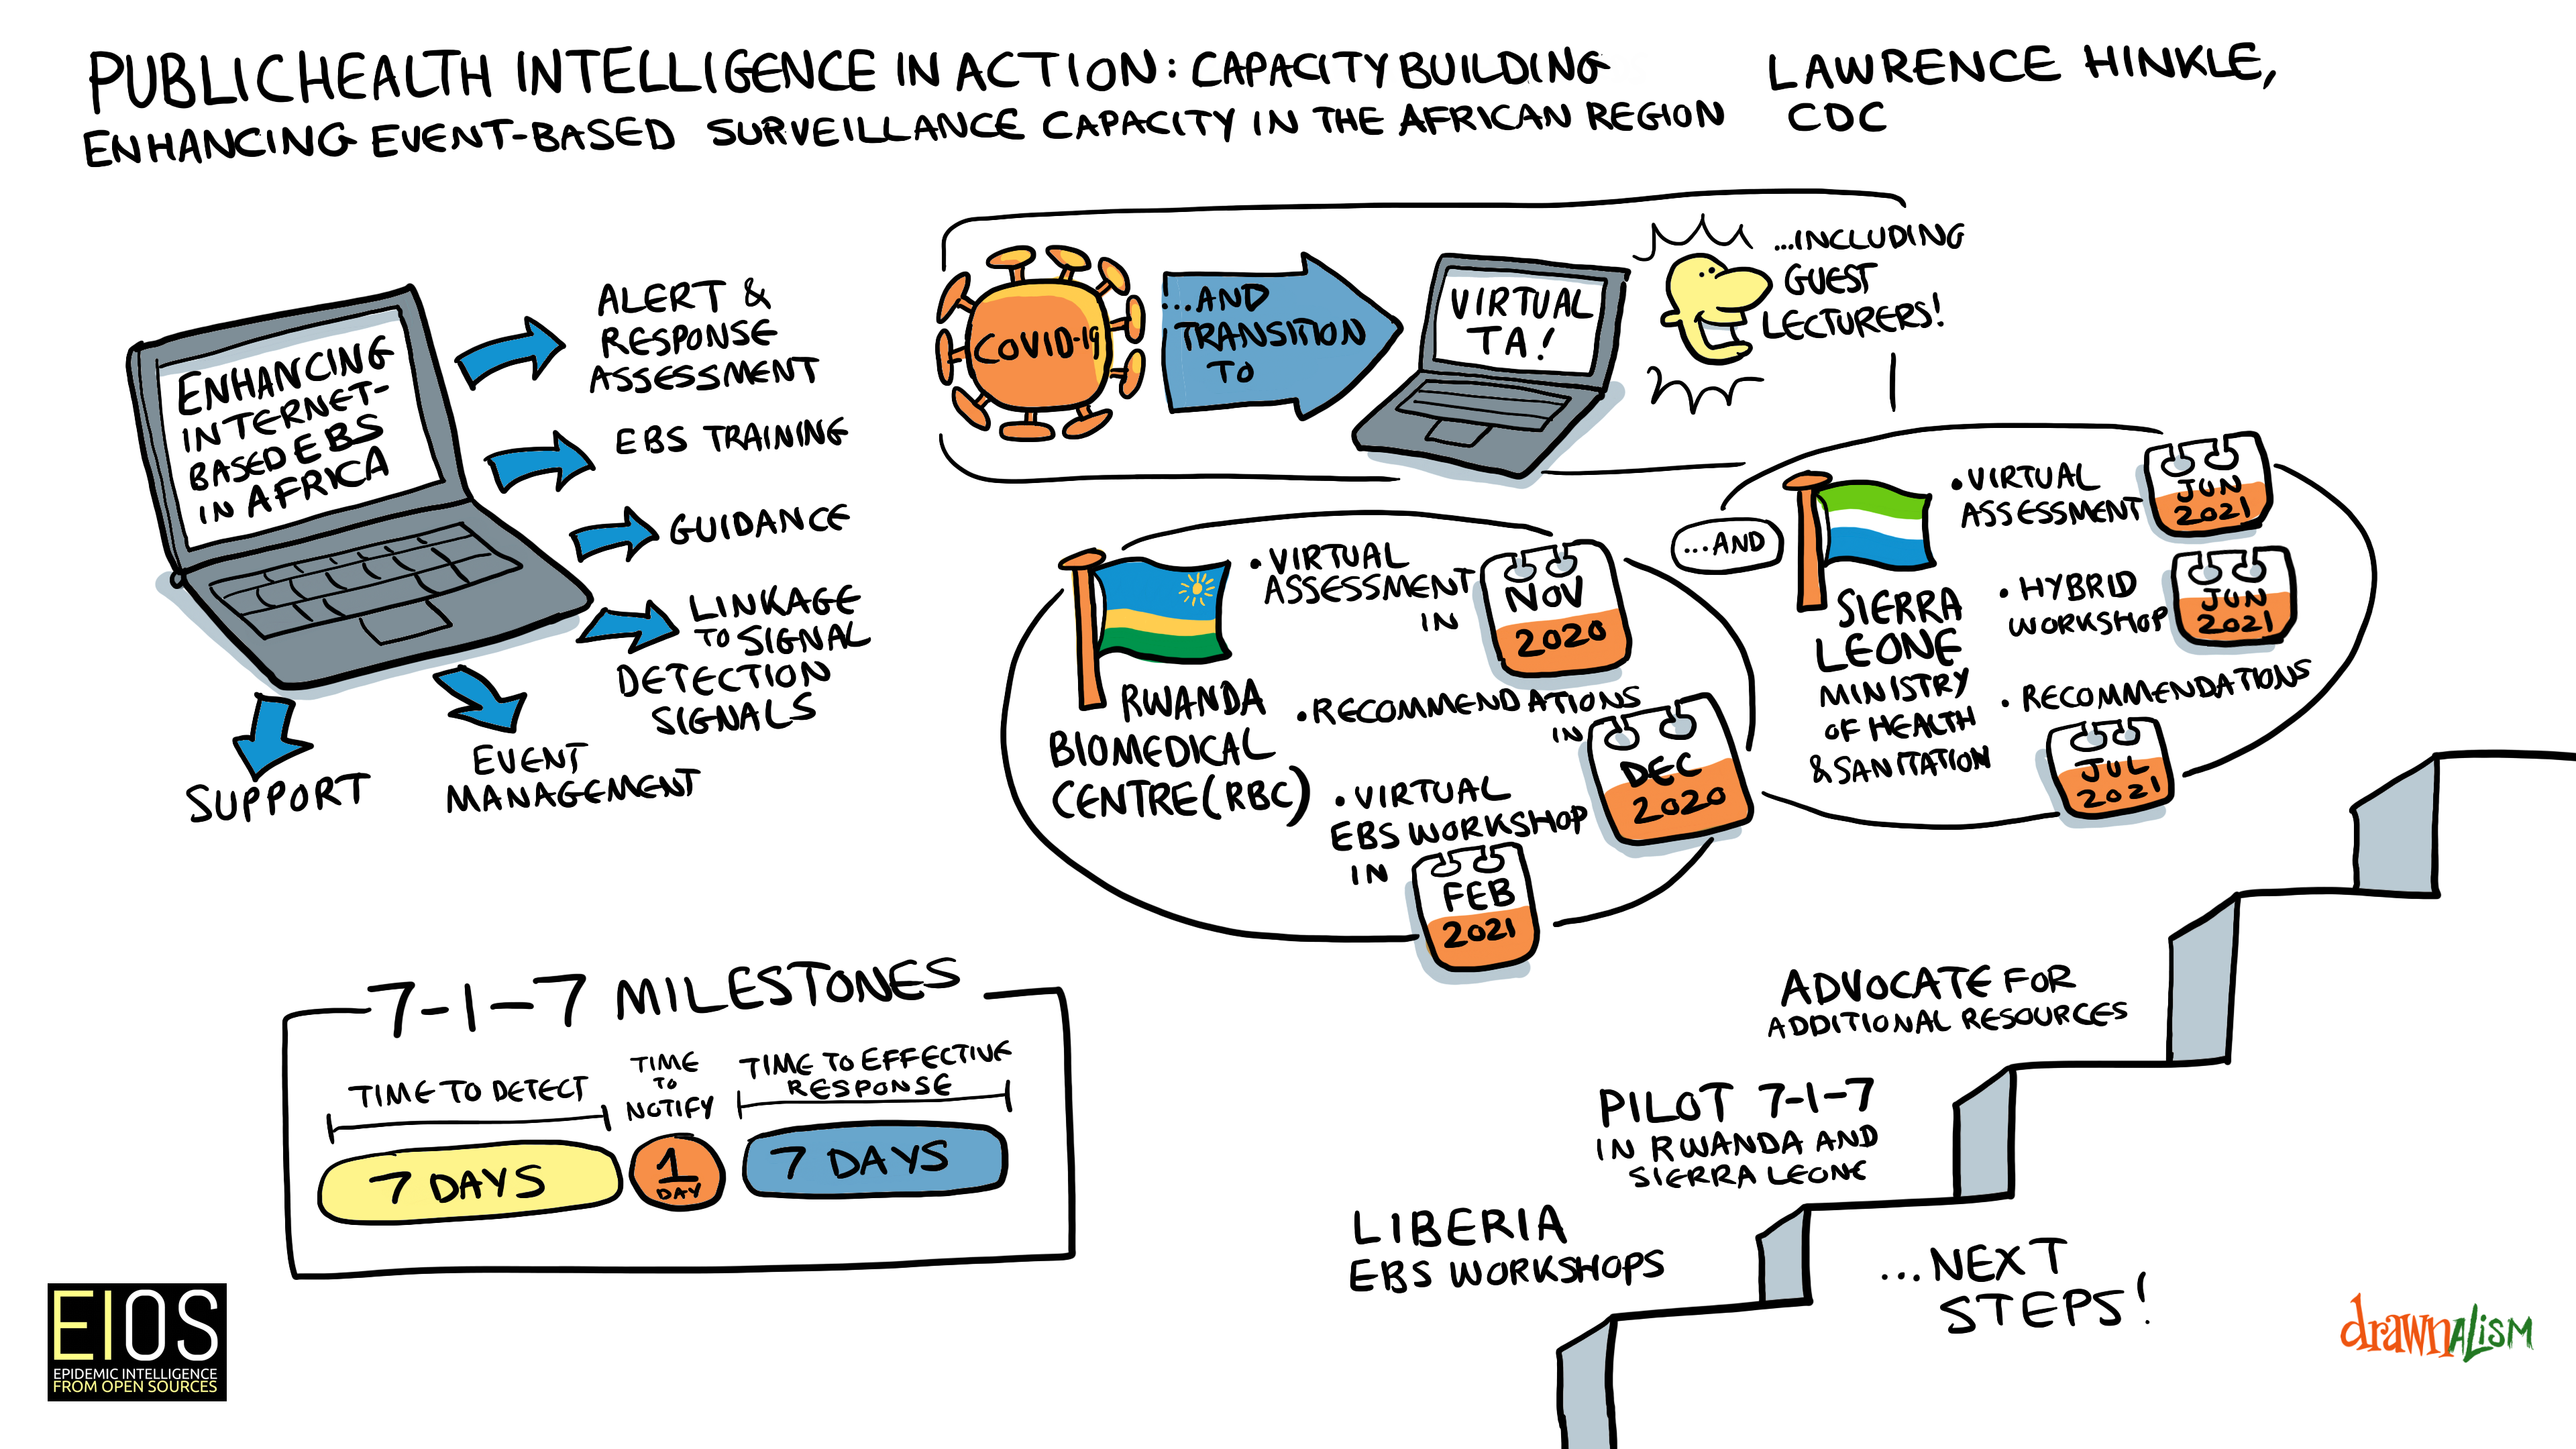 PUBLIC HEALTH INTELLIGENCE IN ACTION: CAPACITY BUILDING
ENHANCING EVENT-BASED SURVEILLANCE CAPACITY IN THE AFRICAN REGION
LAWRENCE HINKLE,
CDC
ENHANCING
INTERNET-
BASED EBS
IN AFRICA
ALERT &
RESPONSE
ASSESSMENT
EBS TRAINING
GUIDANCE
LINKAGE
TO SIGNAL
DETECTION
SIGNALS
EVENT
MANAGEMENT
SUPPORT
COVID-19
...AND
TRANSITION
TO
VIRTUAL
TA!
...INCLUDING
GUEST
LECTURERS!
RWANDA
BIOMEDICAL
CENTRE (RBC)
• VIRTUAL
ASSESSMENT
IN
NOV
2020
• RECOMMENDATIONS
IN
DEC
2020
• VIRTUAL
EBS WORKSHOP
IN
FEB
2021
...AND
SIERRA
LEONE
MINISTRY
OF HEALTH
& SANITATION
• VIRTUAL
ASSESSMENT
JUN
2021
• HYBRID
WORKSHOP
JUN
2021
• RECOMMENDATIONS
JUL
2021
7-1-7 MILESTONES
TIME TO DETECT
7 DAYS
TIME
TO
NOTIFY
1
DAY
TIME TO EFFECTIVE
RESPONSE
7 DAYS
LIBERIA
EBS WORKSHOPS
PILOT 7-1-7
IN RWANDA AND
SIERRA LEONE
ADVOCATE FOR
ADDITIONAL RESOURCES
...NEXT
STEPS!
EIOS
EPIDEMIC INTELLIGENCE
FROM OPEN SOURCES
drawnALISM